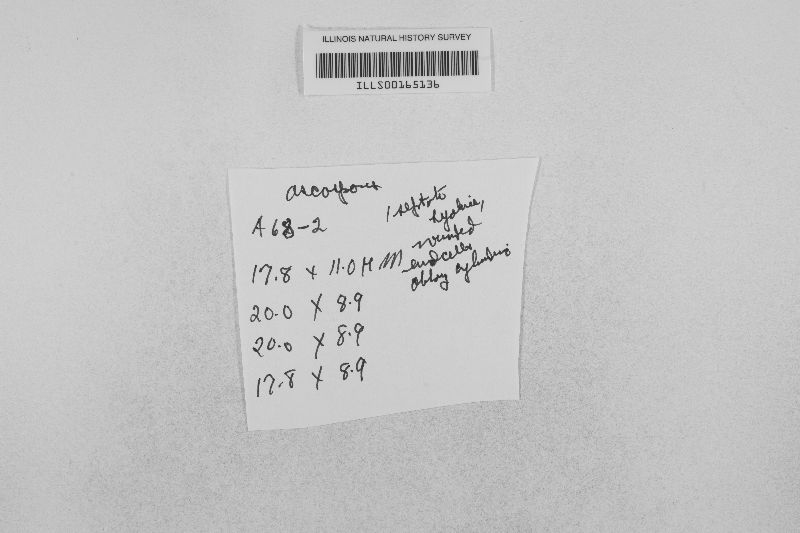 ILLINOIS NATURAL HISTORY SURVEY
ILLS00165136
ascospores
A 68-2
17.8 x 11.0 μm
20.0 x 8.9
20.0 x 8.9
17.8 x 8.9
1 septate
hyaline,
rounded
end cells
oblong cylindric